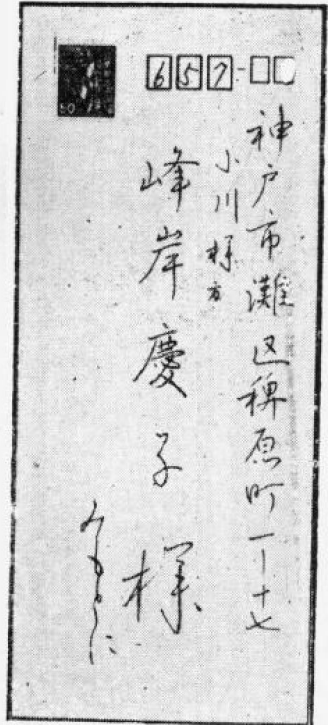 657
神戸市灘区稗原町一ー十七
小川様方
峰岸慶子様
みもとに
50